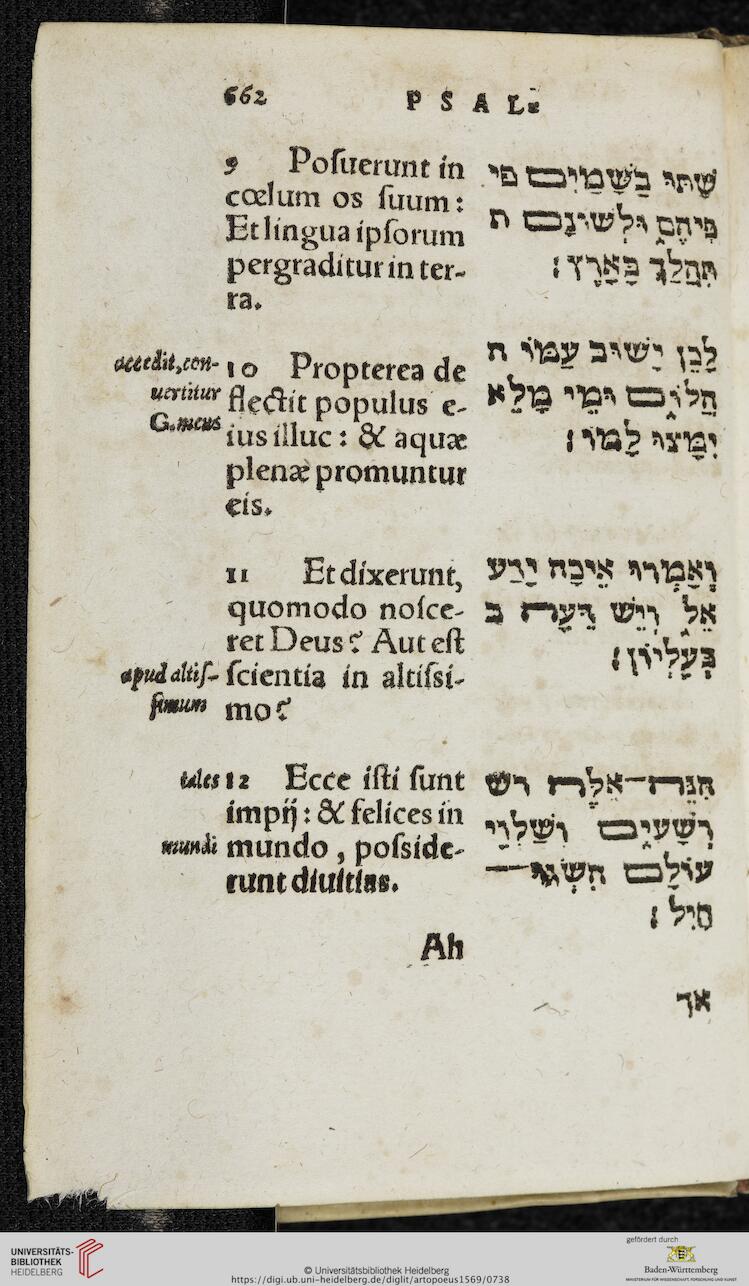 662
PSAL.
9 Posuerunt in
cœlum os suum:
Et lingua ipsorum
pergraditur in ter-
ra.
שַׁתּוּ בַשָּׁמַיִם פי
פִּיהֶם וּלְשׁוֹנָם ת
תִּהֲלַךְ בָּאָרֶץ:
accedit, con-
uertitur
G. meus
10 Propterea de
flectit populus e-
ius illuc: & aquæ
plenæ promuntur
eis.
לָכֵן יָשׁוּב עַמּוֹ ה
הֲלוֹם וּמֵי מָלֵא
יִמָּצוּ לָמוֹ:
11 Et dixerunt,
quomodo nosce-
ret Deus? Aut est
scientia in altissi-
mo?
apud altis-
simum
וְאָמְרוּ אֵיכָה יָדַע
אֵל וְיֵשׁ דֵּעָה ב
בְעֶלְיוֹן:
tales
12 Ecce isti sunt
impij: & felices in
mundo, posside-
runt diuitias.
mundi
הִנֵּה־אֵלֶּה רש
רְשָׁעִים וְשַׁלְוֵי
עוֹלָם הִשְׂגּוּ־
חָיִל:
Ah
אך
UNIVERSITÄTS-
BIBLIOTHEK
HEIDELBERG
© Universitätsbibliothek Heidelberg
https://digi.ub.uni-heidelberg.de/diglit/artopoeus1569/0738
gefördert durch
Baden-Württemberg
MINISTERIUM FÜR WISSENSCHAFT, FORSCHUNG UND KUNST